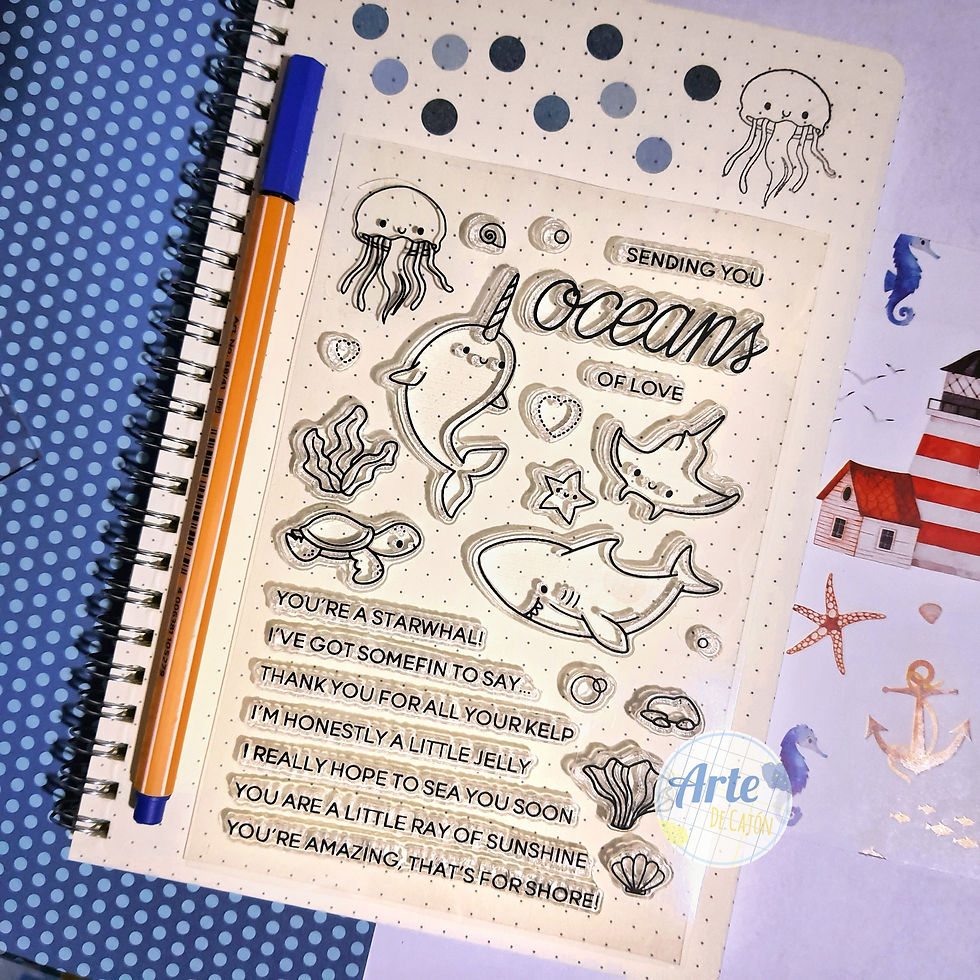 SENDING YOU
oceans
OF LOVE
YOU'RE A STARWHAL!
I'VE GOT SOMEFIN TO SAY...
THANK YOU FOR ALL YOUR KELP
I'M HONESTLY A LITTLE JELLY
I REALLY HOPE TO SEA YOU SOON
YOU ARE A LITTLE RAY OF SUNSHINE
YOU'RE AMAZING, THAT'S FOR SHORE!
Arte
DE CAJÓN